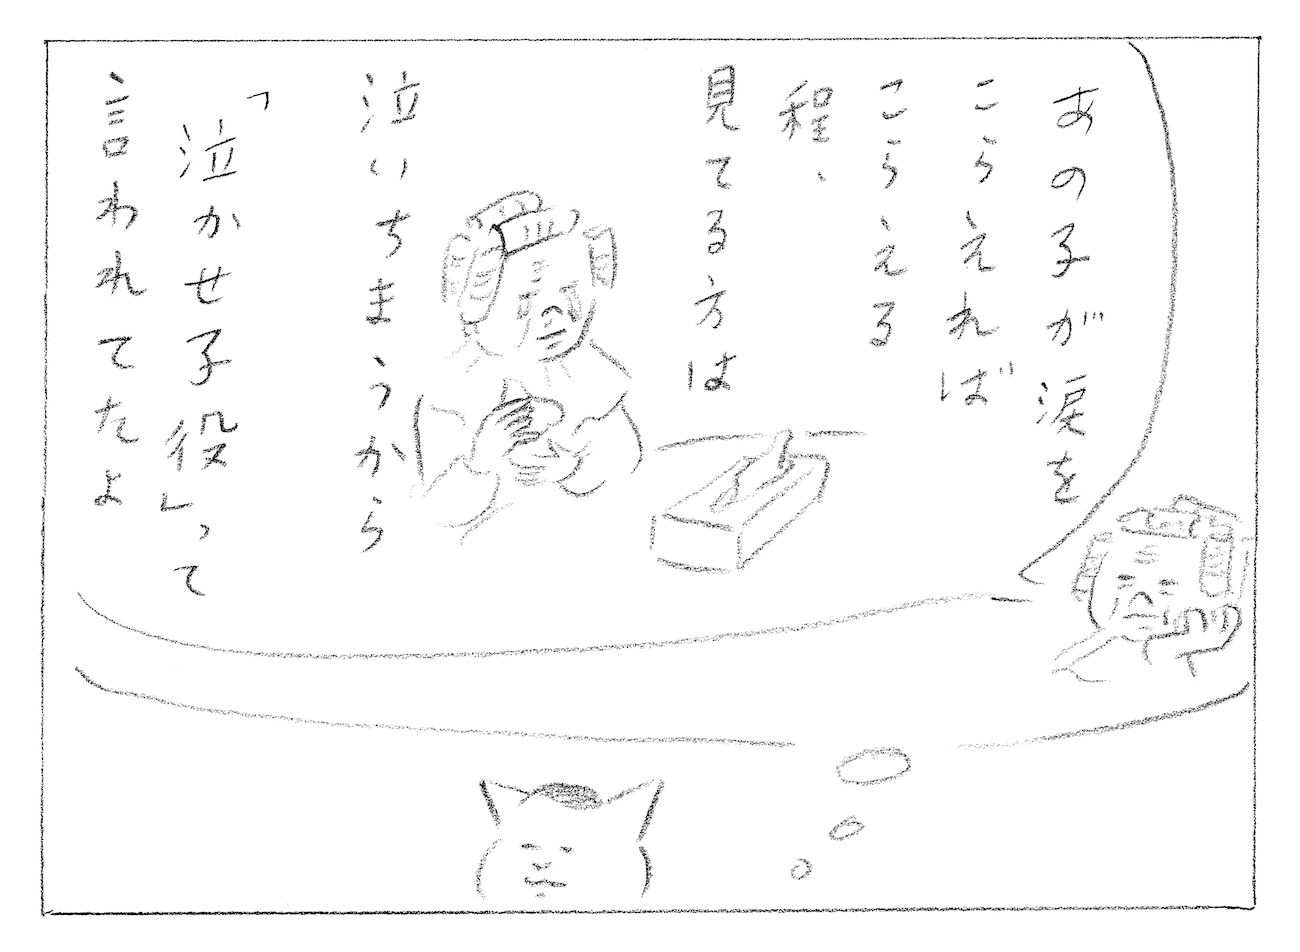 あの子が涙を
こらえれば
こらえる
程、
見てる方は
泣いちまうから
「泣かせ子役」って
言われてたよ